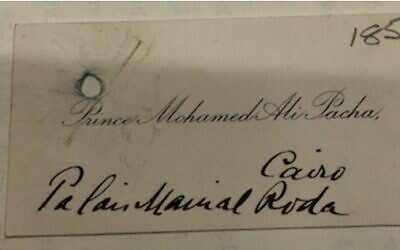 185
Prince Mohamed Ali Pacha.
Cairo
Palais Manial Roda